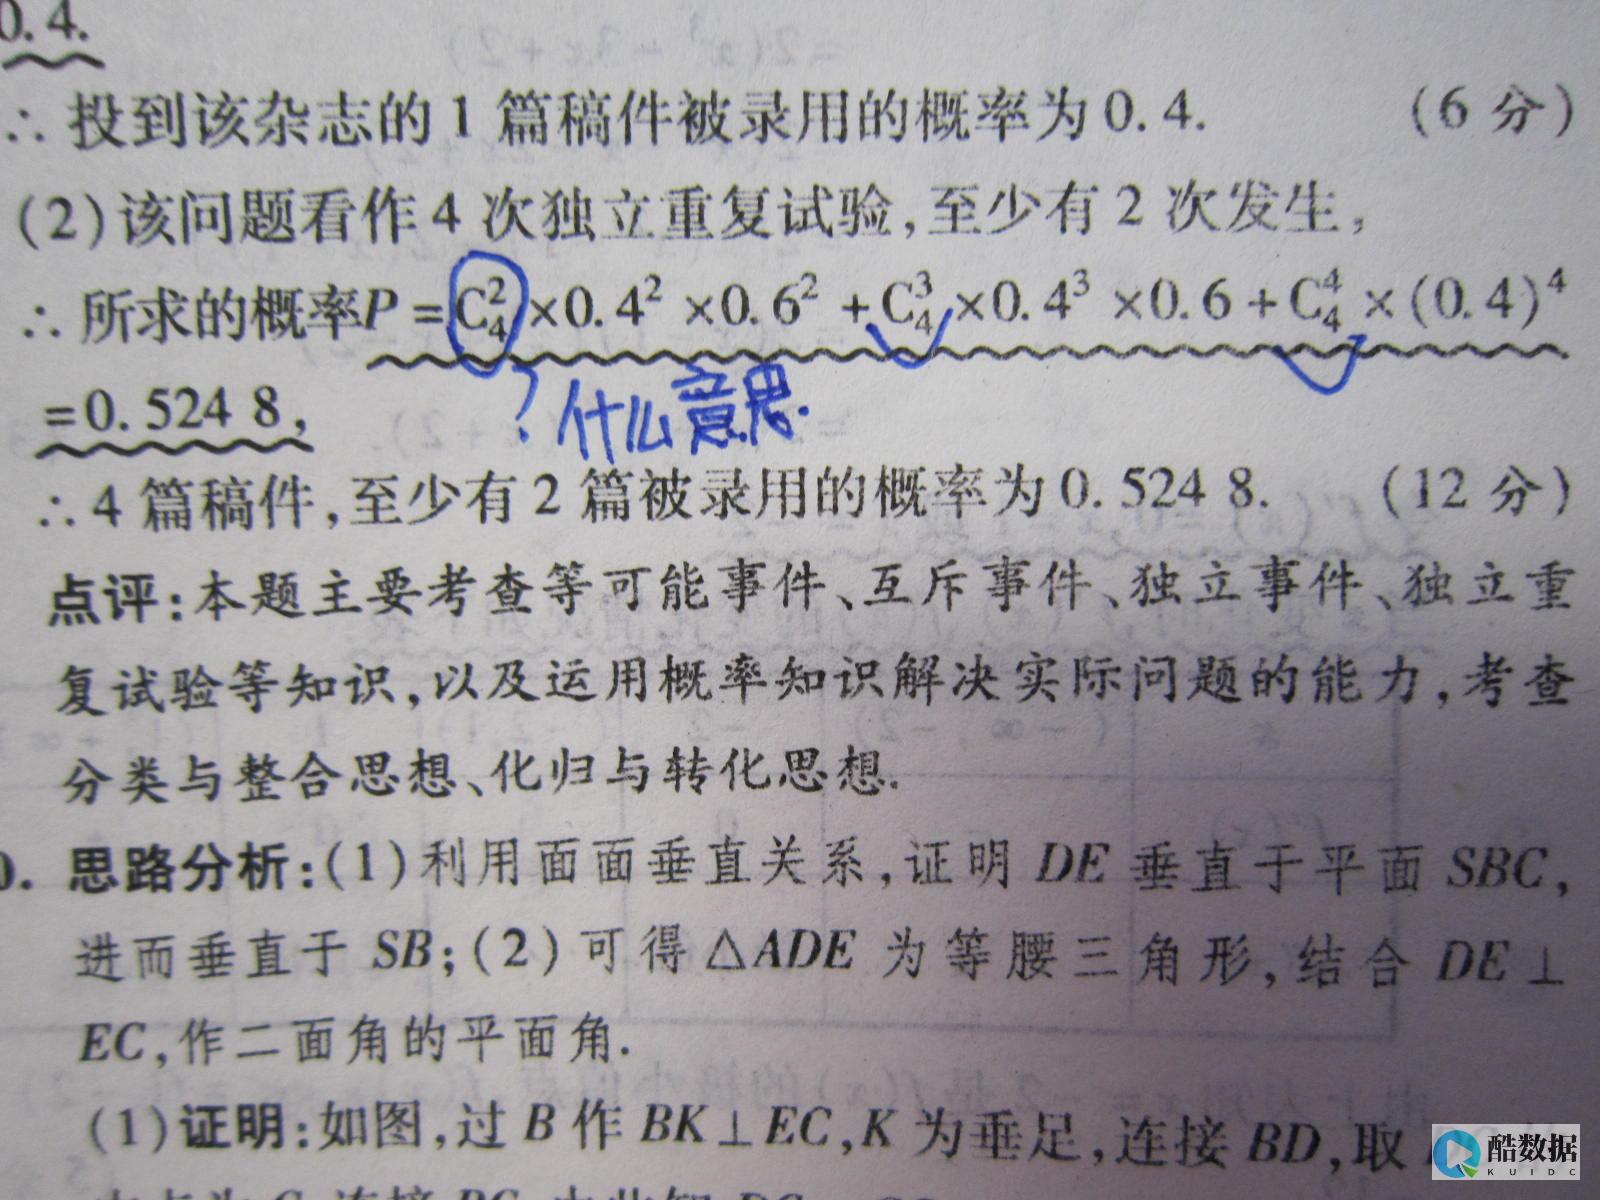 0.4.
∴投到该杂志的1篇稿件被录用的概率为0.4. (6分)
(2)该问题看作4次独立重复试验,至少有2次发生,
∴所求的概率P=C₄²×0.4²×0.6²+C₄³×0.4³×0.6+C₄⁴×(0.4)⁴
=0.524 8,
?什么意思.
∴4篇稿件,至少有2篇被录用的概率为0.524 8. (12分)
点评:本题主要考查等可能事件、互斥事件、独立事件、独立重
复试验等知识,以及运用概率知识解决实际问题的能力,考查
分类与整合思想、化归与转化思想.
0. 思路分析:(1)利用面面垂直关系,证明DE垂直于平面SBC,
进而垂直于SB;(2)可得△ADE为等腰三角形,结合DE⊥
EC,作二面角的平面角.
(1)证明:如图,过B作BK⊥EC,K为垂足,连接BD,取
酷数据
KUIDC